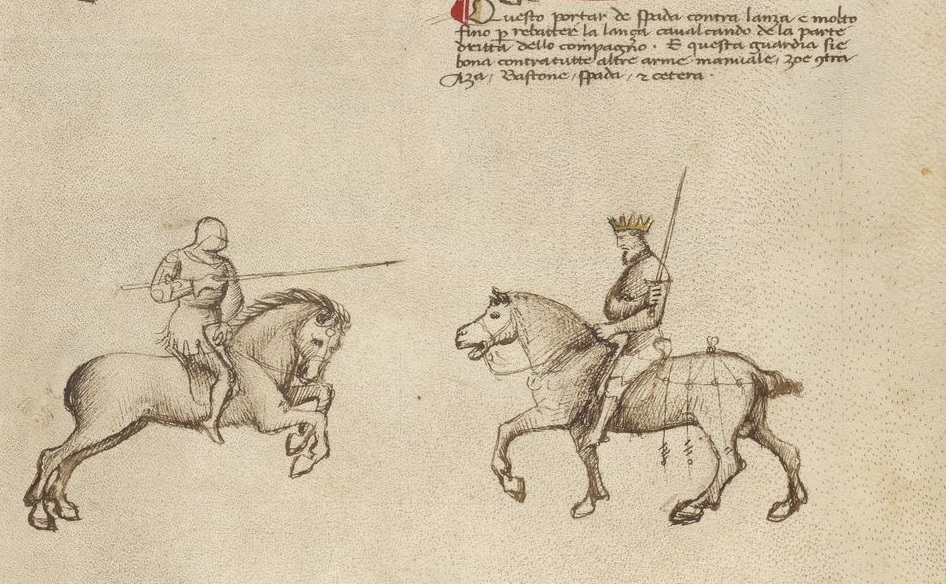 Questo portar de spada contra lanza e molto
fino p rebatter la lanza cavalcando de la parte
dritta dello compagno. E questa guardia sie
bona contra tutte altre arme manuale, zoe contra
Aza, Bastone, spada, & cetera.